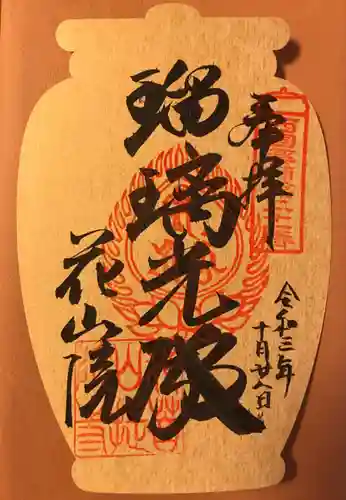 奉拝
令和三年
十月廿八日
瑠璃光殿
花山院